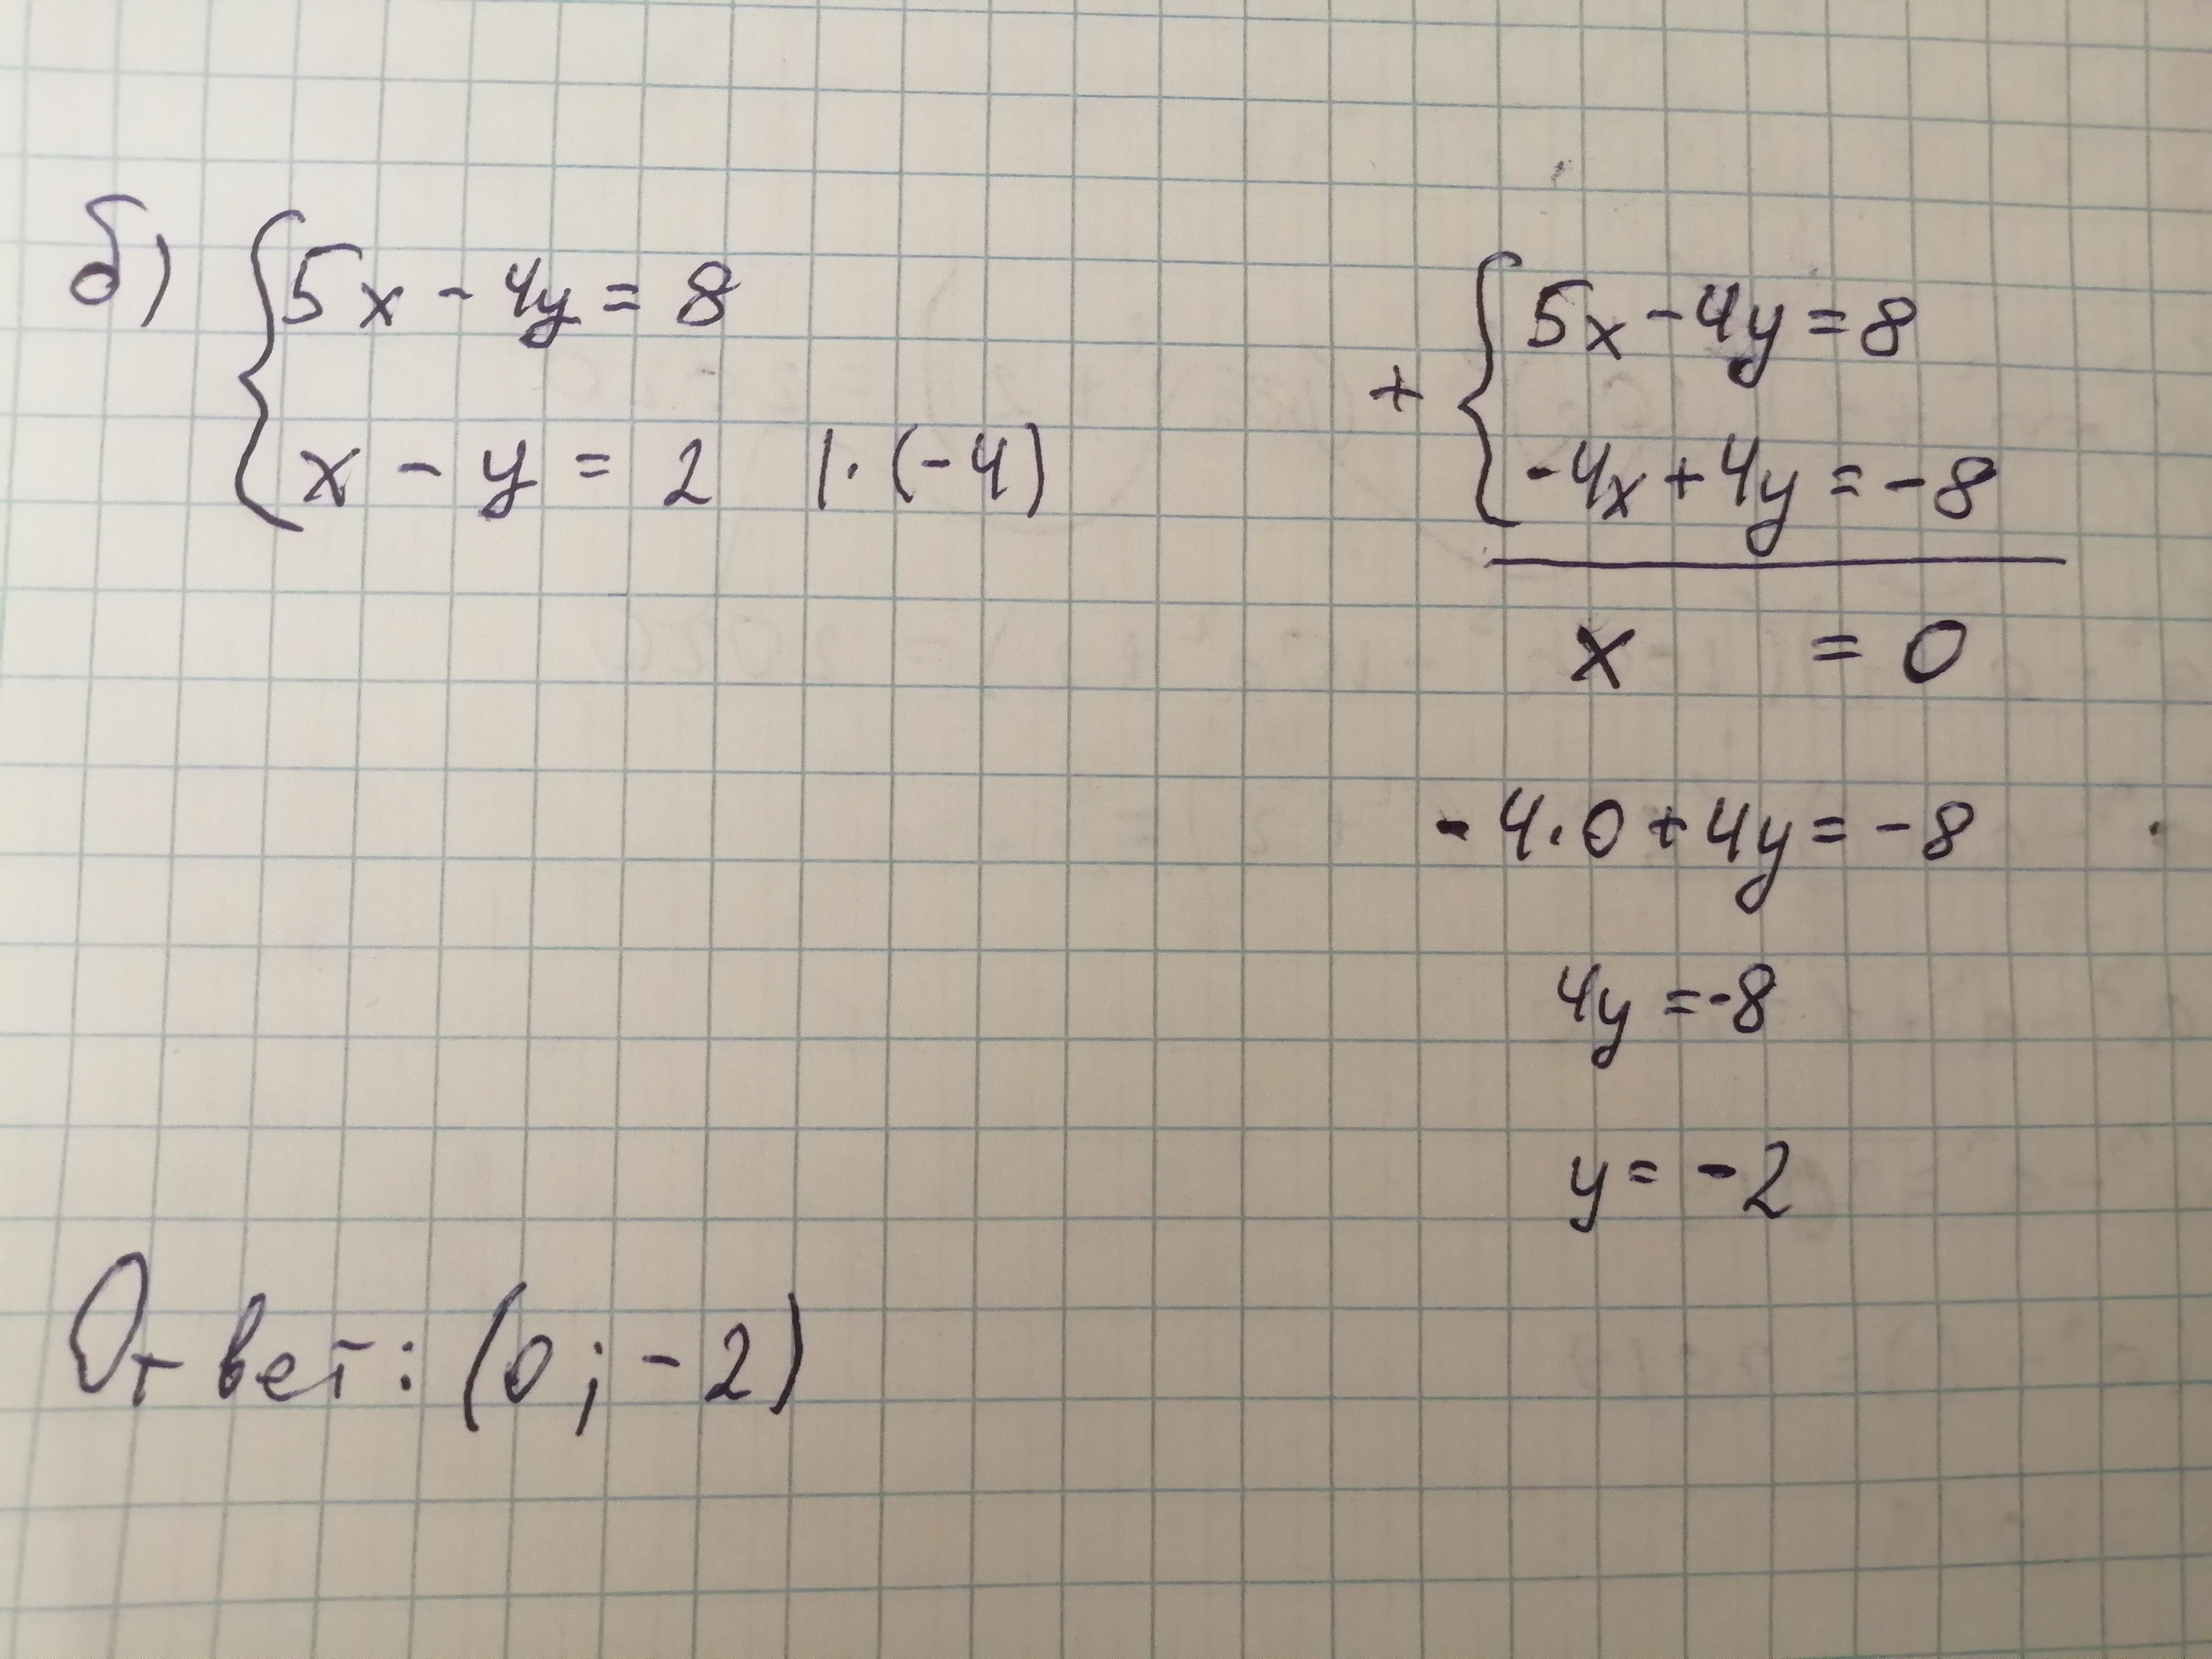 б) 5x - 4y = 8
x - y = 2 | · (-4)
+ 5x - 4y = 8
-4x + 4y = -8
x = 0
- 4 · 0 + 4y = -8
4y = -8
y = -2
Ответ: (0; -2)